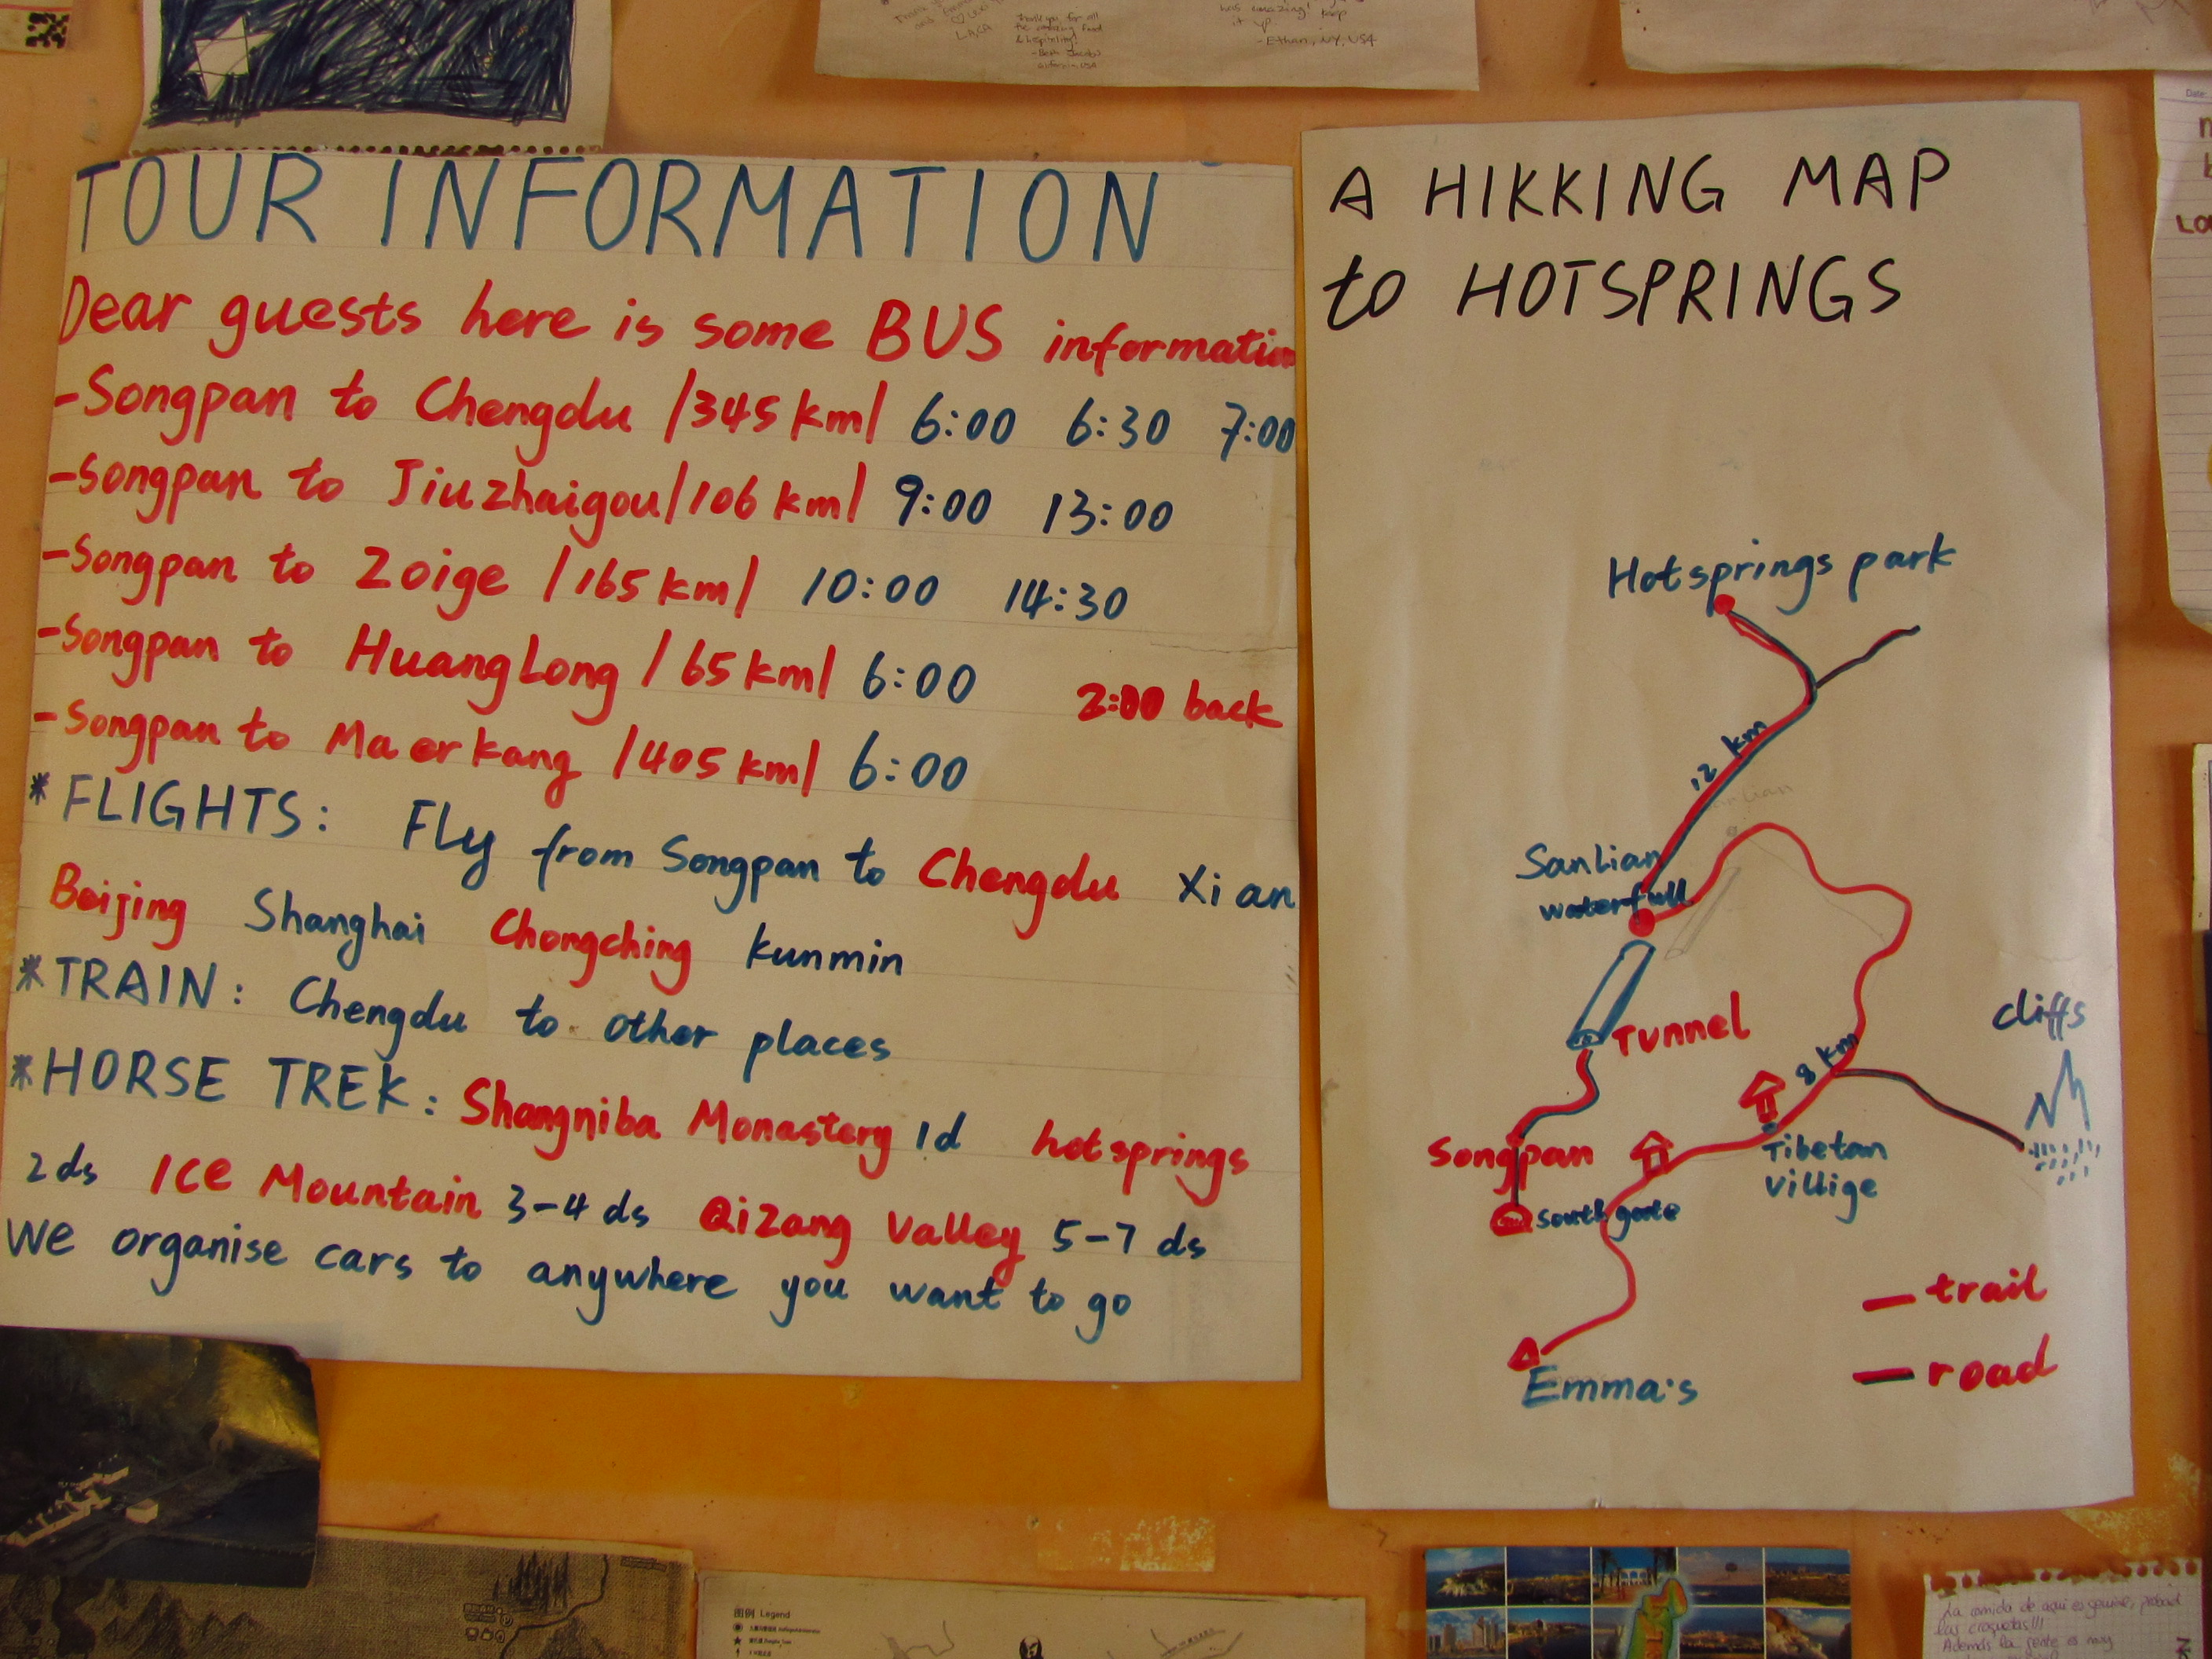 - Ethan, NY, USA
TOUR INFORMATION
Dear guests here is some BUS information
-Songpan to Chengdu /345 km/ 6:00 6:30 7:00
-Songpan to Jiuzhaigou/106 km/ 9:00 13:00
-Songpan to Zoige /165 km/ 10:00 14:30
-Songpan to HuangLong /65 km/ 6:00 2:00 back
-Songpan to Maerkang /405 km/ 6:00
* FLIGHTS: Fly from Songpan to Chengdu Xian
Beijing Shanghai Chongching kunmin
* TRAIN: Chengdu to other places
* HORSE TREK: Shangniba Monastery 1d hotsprings
2 ds Ice Mountain 3-4 ds Qizang Valley 5-7 ds
We organise cars to anywhere you want to go
A HIKKING MAP
to HOTSPRINGS
Hotsprings park
12 km
Sanlian
waterfull
Tunnel
cliffs
8 km
Songpan
Tibetan
villige
South gate
trail
road
Emma's
图例 Legend